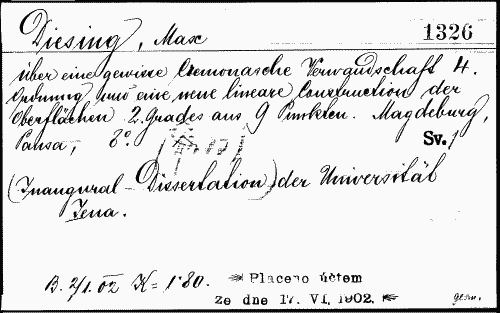 Diesing, Max
1326
über eine gewisse Cremonasche Verwandschaft 4.
Ordnung und eine neue lineare Construction der
Oberflächen 2. Grades aus 9 Punkten. Magdeburg,
Pansa, 8°.
Sv. 1
(Inaugural-Dissertation) der Universität
Jena.
B. 2/1. 02 K = 1·80.
Placeno účtem
ze dne 17. VI. 1902.